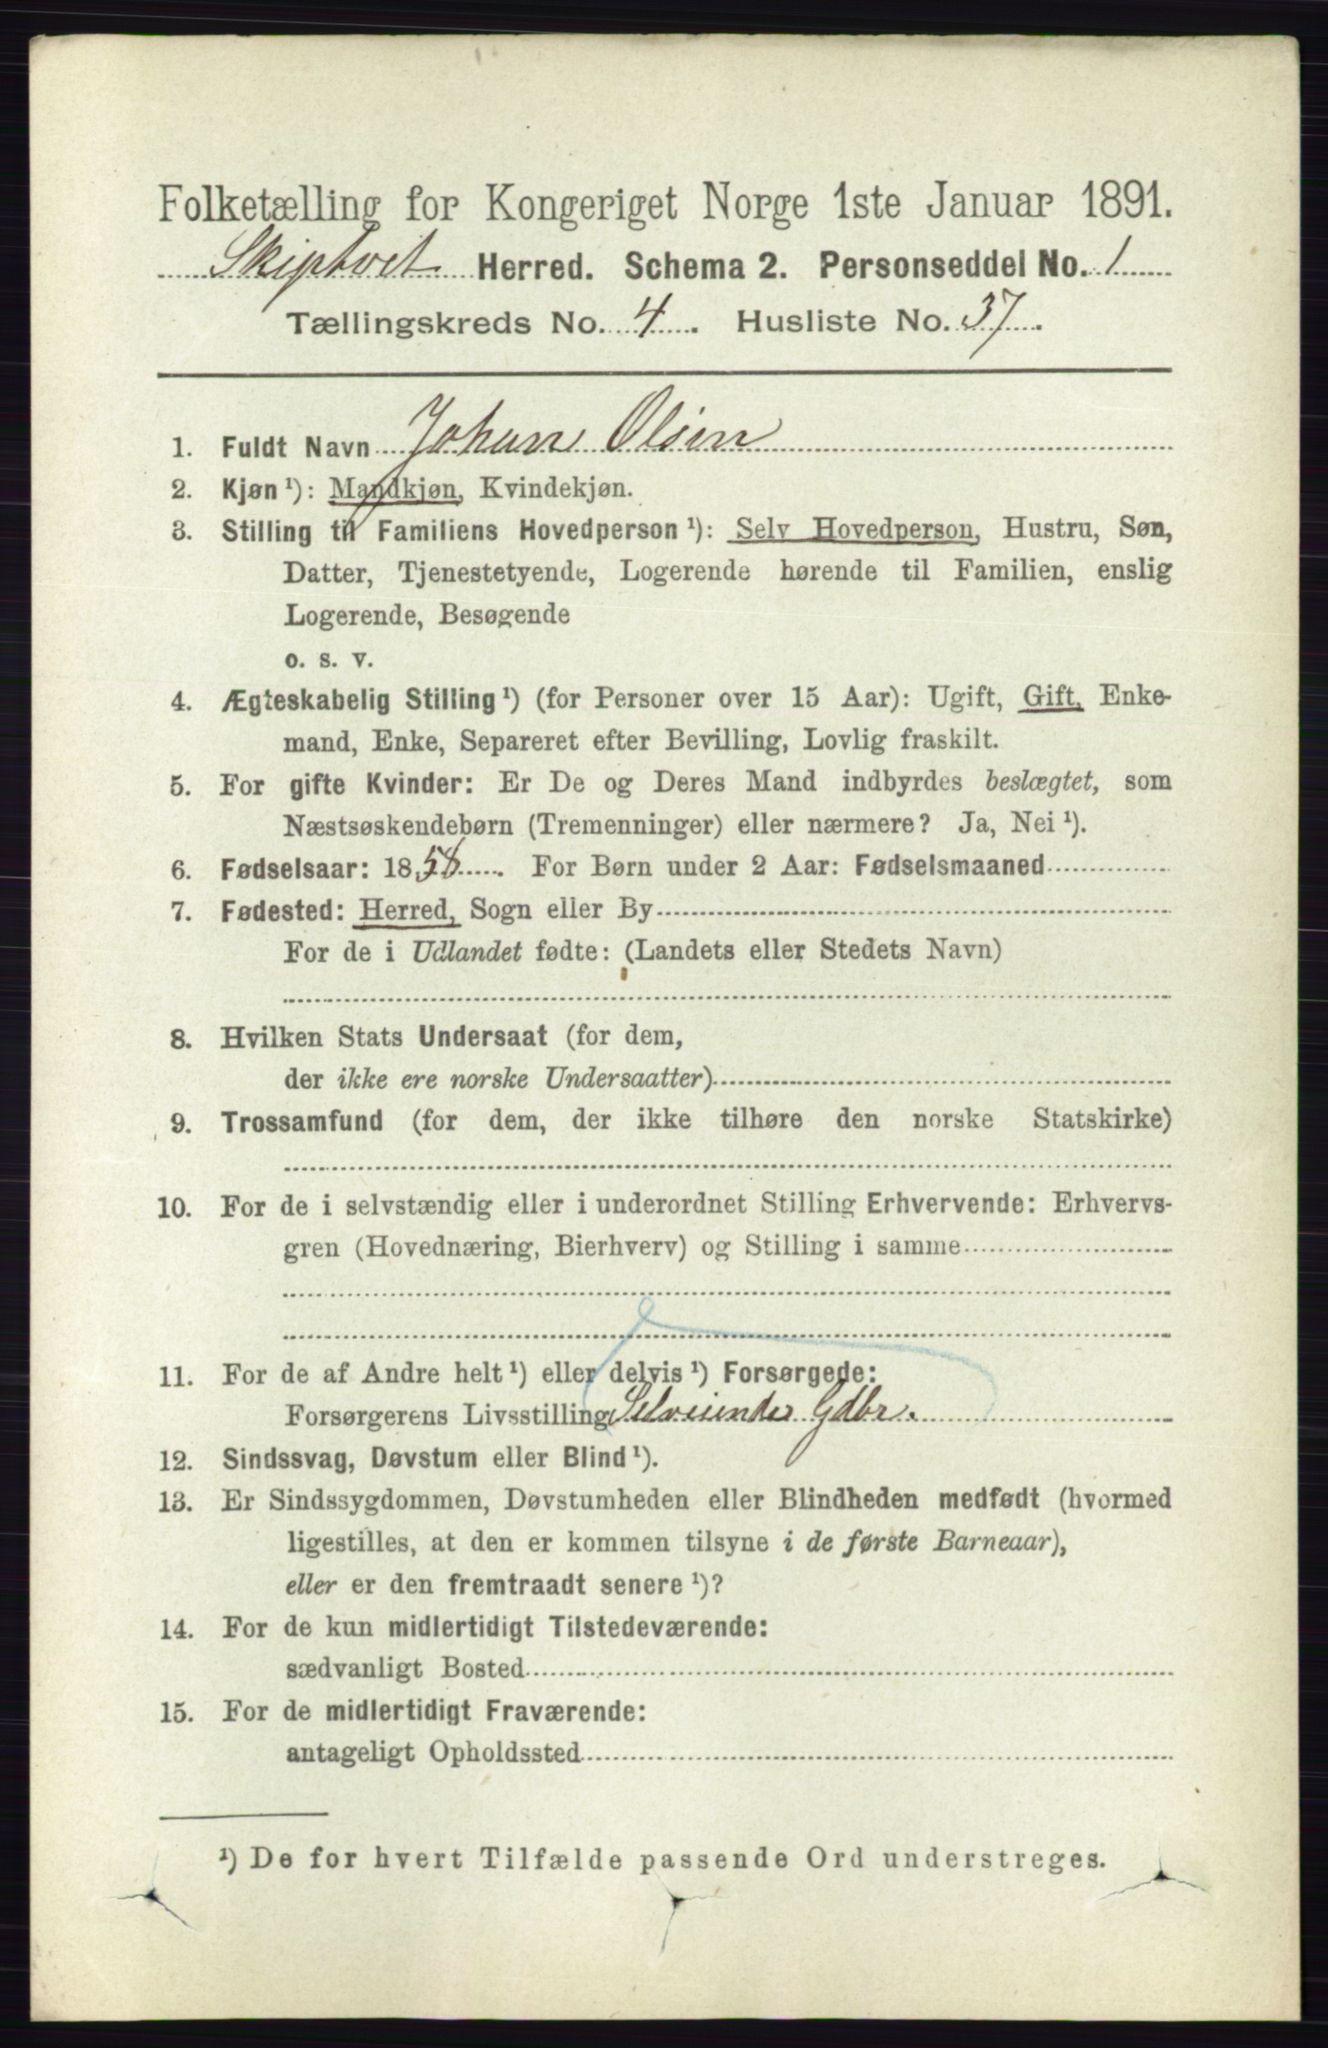 Folketælling for Kongeriget Norge 1ste Januar 1891.
Skiptvet Herred. Schema 2. Personseddel No. 1
Tællingskreds No. 4. Husliste No. 37.
1. Fuldt Navn Johan Olsen
2. Kjøn ¹): Mandkjøn, Kvindekjøn.
3. Stilling til Familiens Hovedperson ¹): Selv Hovedperson, Hustru, Søn,
Datter, Tjenestetyende, Logerende hørende til Familien, enslig
Logerende, Besøgende
o. s. v.
4. Ægteskabelig Stilling ¹) (for Personer over 15 Aar): Ugift, Gift, Enke-
mand, Enke, Separeret efter Bevilling, Lovlig fraskilt.
5. For gifte Kvinder: Er De og Deres Mand indbyrdes beslægtet, som
Næstsøskendebørn (Tremenninger) eller nærmere? Ja, Nei ¹).
6. Fødselsaar: 1858. For Børn under 2 Aar: Fødselsmaaned
7. Fødested: Herred, Sogn eller By
For de i Udlandet fødte: (Landets eller Stedets Navn)
8. Hvilken Stats Undersaat (for dem,
der ikke ere norske Undersaatter)
9. Trossamfund (for dem, der ikke tilhøre den norske Statskirke)
10. For de i selvstændig eller i underordnet Stilling Erhvervende: Erhvervs-
gren (Hovednæring, Bierhverv) og Stilling i samme
11. For de af Andre helt ¹) eller delvis ¹) Forsørgede:
Forsørgerens Livsstilling Selveiende Gdbr.
12. Sindssvag, Døvstum eller Blind ¹).
13. Er Sindssygdommen, Døvstumheden eller Blindheden medfødt (hvormed
ligestilles, at den er kommen tilsyne i de første Barneaar),
eller er den fremtraadt senere ¹)?
14. For de kun midlertidigt Tilstedeværende:
sædvanligt Bosted
15. For de midlertidigt Fraværende:
antageligt Opholdssted
¹) De for hvert Tilfælde passende Ord understreges.